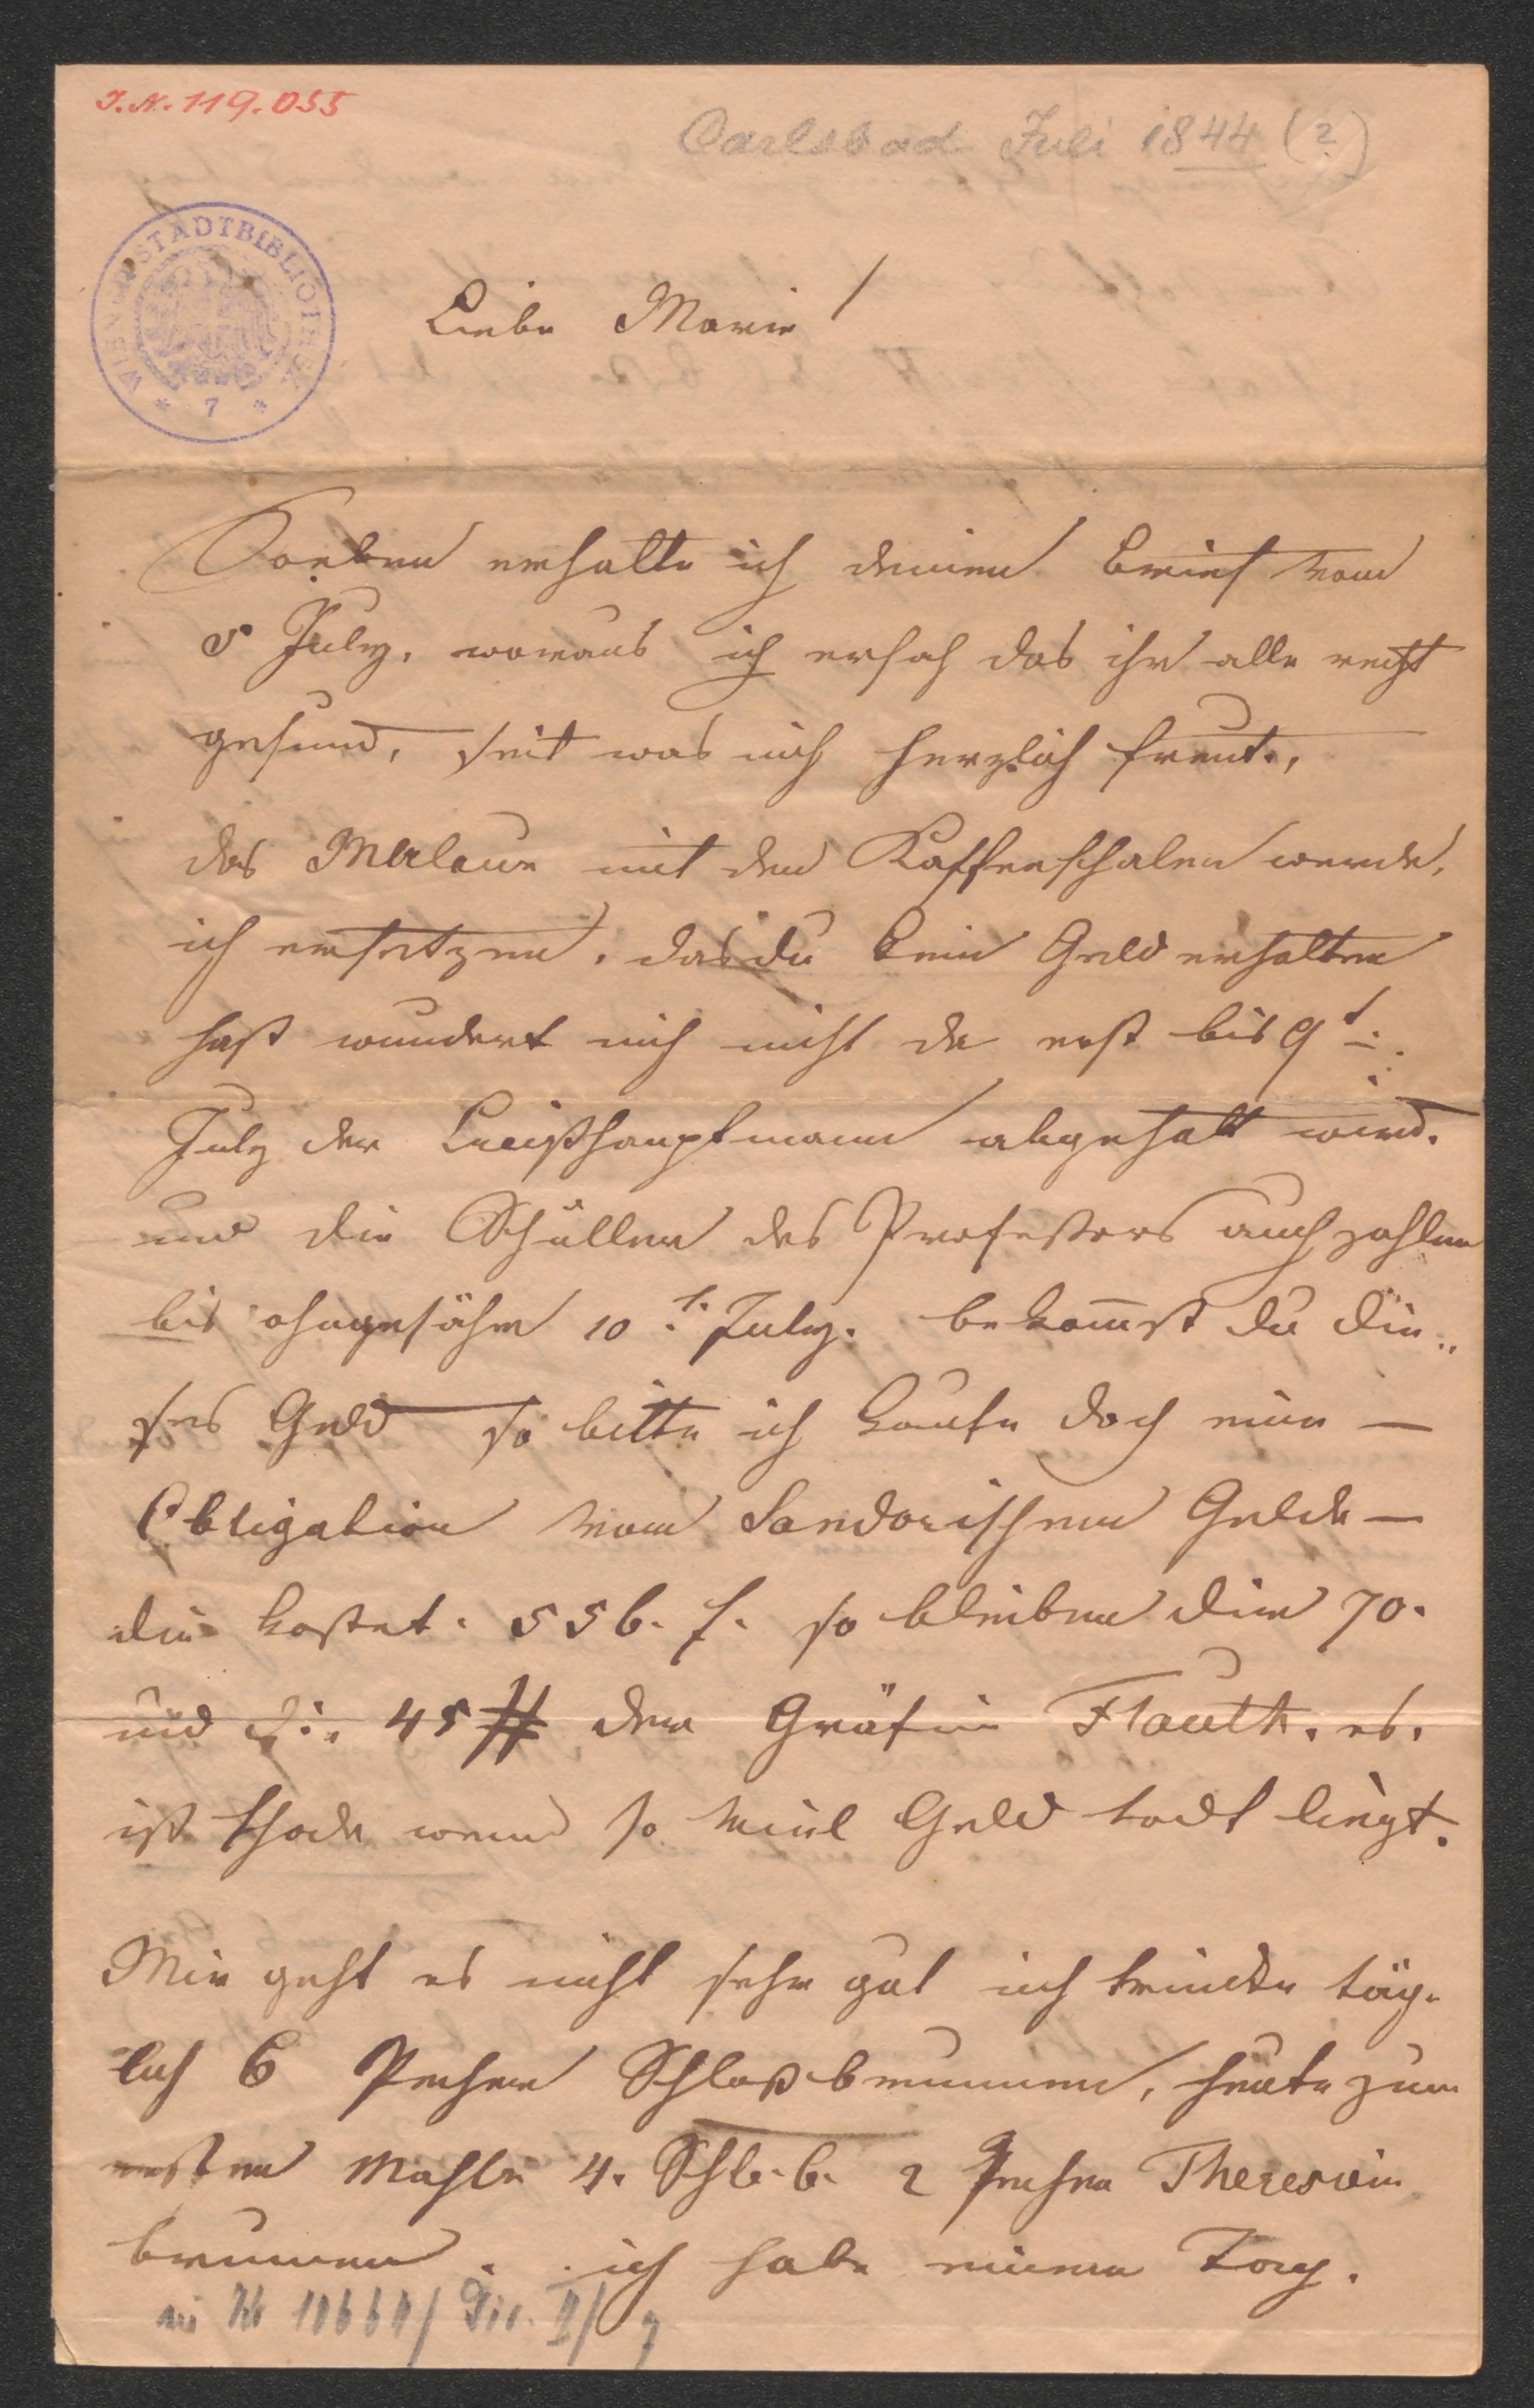 J.N. 119.055
Carlsbad Juli 1844 (?)
WIENER STADTBIBLIOTHEK
* 7 *
Liebe Marie!
Soeben erhalte ich deinen Brief vom
5 July, woraus ich ersah das ihr alle recht
gesund, seit was mich herzlich freut.,
das mit den Kaffeeschalen werde,
ich ersetzen, das du kein Geld erhalten
hast wundert mich nicht da erst bis 9t.
July der Kreißhauptmann abgehalt wird.
und die Schüller des Profeßors auch zahlen
bis ohngefähr 10t. July. bekom̅st du die„
ses Geld so bitte ich kaufe doch eine —
Obligation vom Sandorischen Gelde —
die kostet. 556. f. so bleiben dir 70.
und die 45 # der Gräfin es.
ist schade wenn so viel Geld todt liegt.
Mir geht es nicht sehr gut ich trincke täg-
lich 6 Pecher Schloßbrunnen, heute zum
ersten Mahle 4. Schl.b. 2 Pecher Theresien
brunnen. ich habe einen Tag.